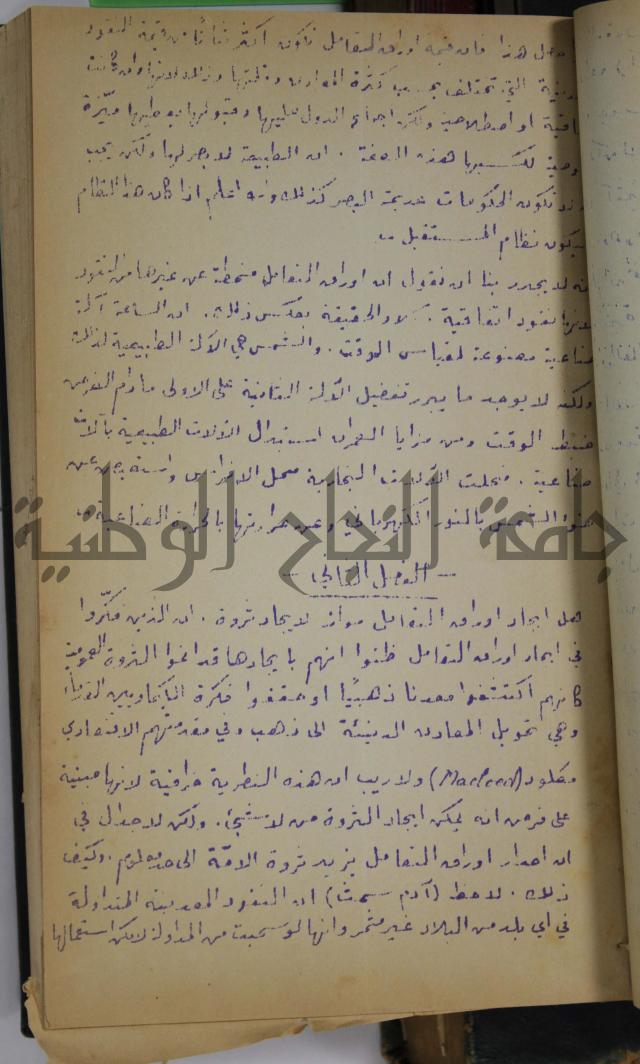 هذا فان قيمة اوراق التعامل تكون اكثر ثباتًا من قيمة النقود
المعدنية التي تختلف بحسب كثرة المعادن وقلتها وذلك لانها وان كانت
اتفاقية او اصطلاحية ولكن اجماع الدول عليها وقبولها يوطيها ميّزة
لتكسبها هذه الصفة . ان الطبيعة لا بصر لها ولكن يجب
تكون الحكومات عديمة البصر كذلك والله اعلم اذا كان هذا النظام
سيكون نظام المستقبل
انه لا يجدر بنا ان نقول ان اوراق التعامل منحطة عن غيرها من النقود
لانها نقود اتفاقية . كلا والحقيقة بعكس ذلك . ان الساعة آلة
صناعية مصنوعة لمقياس الوقت . والشمس هي الآلة الطبيعية لذلك
ولكنه لا يوجد ما يبرر تفضيل الآلة الثانية على الاولى ما دام الغرض
ضبط الوقت ومن مزايا العمران استبدال الآلات الطبيعية بآلات
صناعية . فحلت الآلات البخارية محل الافراس واستعيض عن
ضوء الشمس بالنور الكهربائي وعن حرارتها بالحرارة الصناعية
جامعة النجاح الوطنية
— الفصل الثاني —
هل ايجاد اوراق التعامل موازٍ لايجاد ثروة . ان الذين فكّروا
في ايجاد اوراق التعامل ظنوا انهم بايجادها قد انموا الثروة العمومية
كانهم اكتشفوا معدنا ذهبيًا او حققوا فكرة الكيماويين القدماء
وهي تحويل المعادن الدنيئة الى ذهب وفي مقدمتهم الاقتصادي
مكلود (Macleod) ولا ريب ان هذه النظرية خرافية لانها مبنية
على فرض انه يمكن ايجاد الثروة من لا شيء . ولكن لا جدال في
ان اصدار اوراق التعامل يزيد ثروة الامّة الى حد معلوم . وكيف
ذلك . لاحظ (آدم سميث) ان النقود المعدنية المتداولة
في اي بلد من البلاد غير مثمر وانها لو سحبت من المداولة لامكن استعمالها